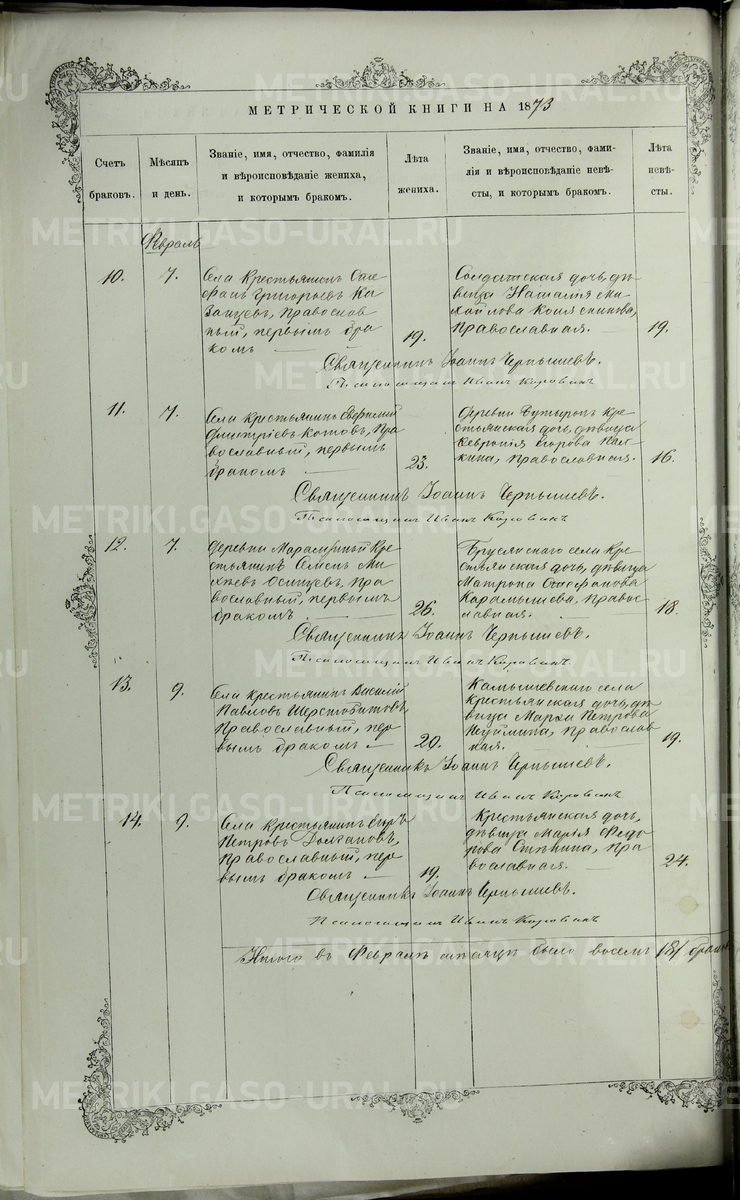 МЕТРИЧЕСКОЙ КНИГИ НА 1873
Счетъ
браковъ.
Мѣсяцъ
и день.
Званіе, имя, отчество, фамилія
и вѣроисповѣданіе жениха,
и которымъ бракомъ.
Лѣта
жениха.
Званіе, имя, отчество, фами-
лія и вѣроисповѣданіе невѣ-
сты, и которымъ бракомъ.
Лѣта
невѣ-
сты.
Февраль
10.
7.
Села крестьянинъ Сте
фанъ Григорьевъ Ка
занцевъ, Православ
ный, первымъ бра
комъ
19.
Солдатская дочь, дѣ
вица Наталія Ми
хайлова
Православная.
19.
Священникъ Іоаннъ Чернышевъ.
Псаломщикъ Иванъ
11.
7.
Села крестьянинъ Евфимій
Димитріевъ Котовъ, Пра
вославный, первымъ
бракомъ
23.
Деревни кре
стьянская дочь, дѣвица
Февронія Егорова
Православная.
16.
Священникъ Іоаннъ Чернышевъ.
Псаломщикъ Иванъ
12.
7.
Деревни кре
стьянинъ Семенъ Ми
хѣевъ Осинцевъ, Пра
вославный, первымъ
бракомъ
26.
Бруснянскаго села кре
стьянская дочь, дѣвица
Матрона Стефанова
Карамышева, Правос
лавная.
18.
Священникъ Іоаннъ Чернышевъ.
Псаломщикъ Иванъ
13.
9.
Села крестьянинъ Василій
Павловъ Шерстобитовъ,
Православный, пер
вымъ бракомъ
20.
Камышевскаго села
крестьянская дочь, дѣ
вица Марѳа Петрова
Православ
ная.
19.
Священникъ Іоаннъ Чернышевъ.
Псаломщикъ Иванъ
14.
9.
Села крестьянинъ
Петровъ Долгановъ,
Православный, пер
вымъ бракомъ
19.
Крестьянская дочь,
дѣвица Марія Ѳедо
рова Пра
вославная.
24.
Священникъ Іоаннъ Чернышевъ.
Псаломщикъ Иванъ
Итого въ Февралѣ мѣсяцѣ было восемь /8/ браковъ
METRIKI.GASO-URAL.RU